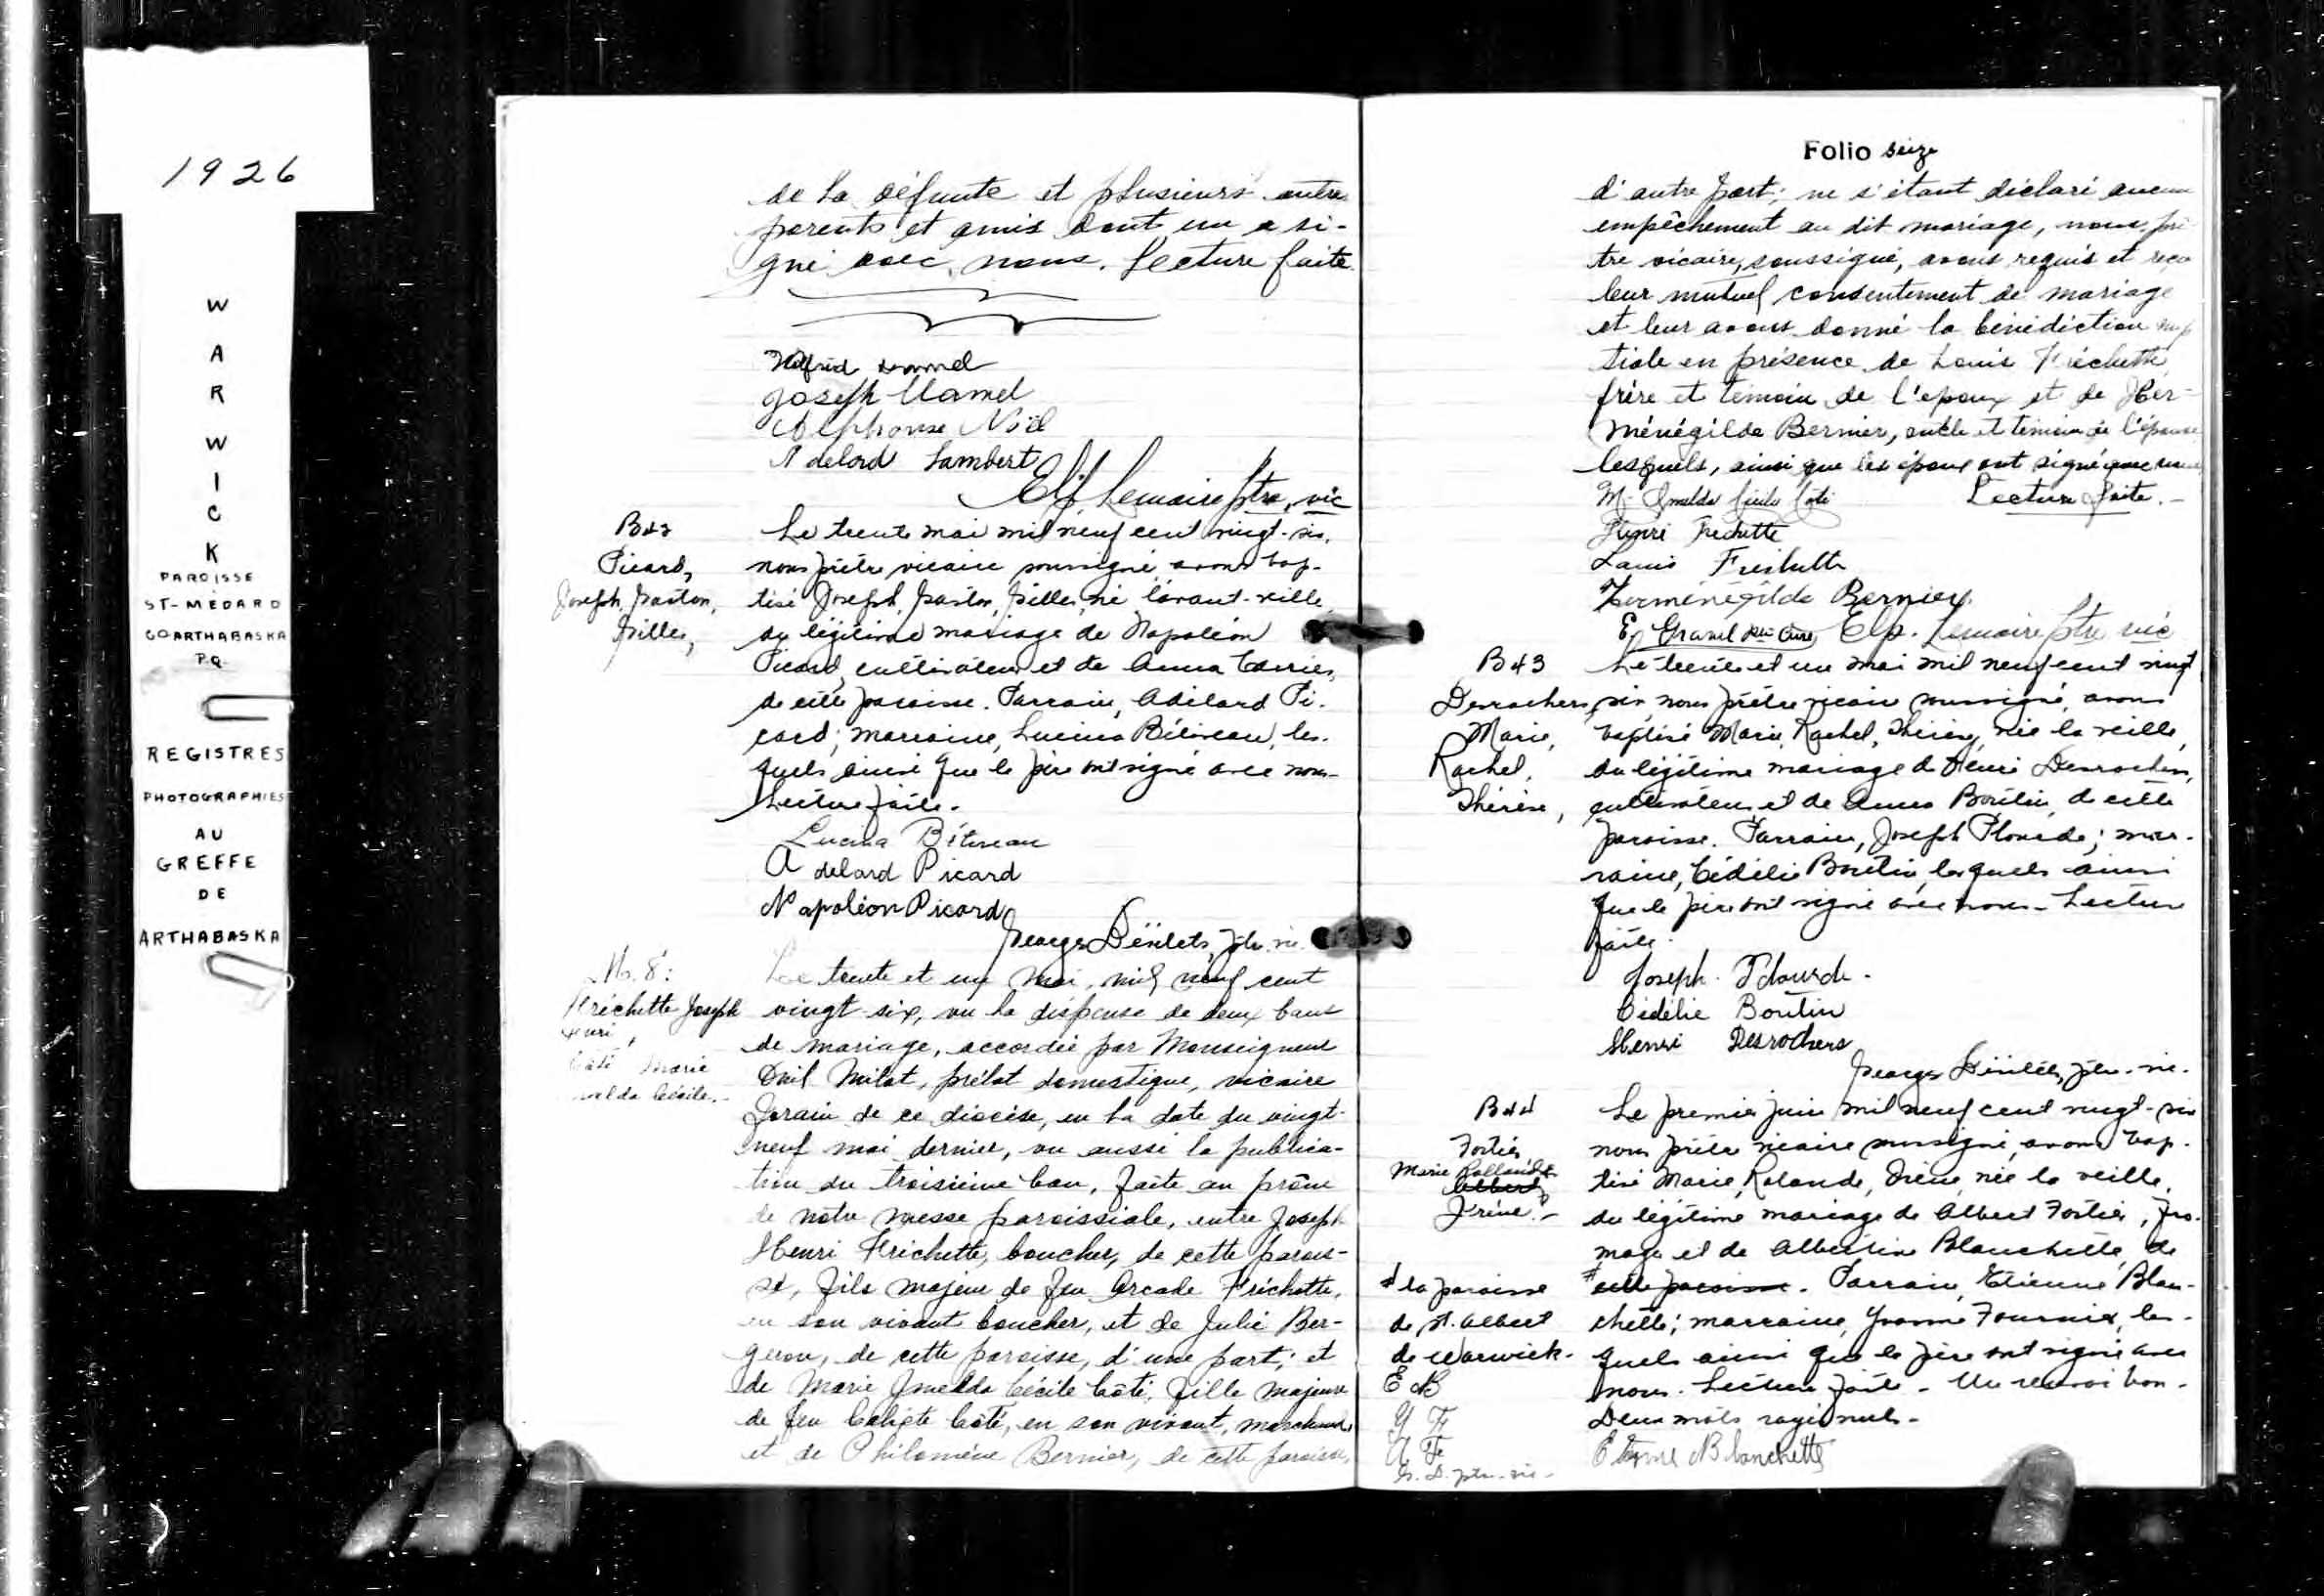 1926
W
A
R
W
I
C
K
PAROISSE
ST-MÉDARD
CO ARTHABASKA
P.Q.
REGISTRES
PHOTOGRAPHIES
AU
GREFFE
DE
ARTHABASKA
de la défunte et plusieurs autres
parents et amis dont un a si-
gné avec nous. Lecture faite.
Joseph Hamel
Alphonse Noël
Adelard Lambert
Elp. Lemaire ptre, vic
B42
Picard,
Joseph, Gaston,
Gilles,
Le trente mai mil neuf cent vingt-six,
nous prêtre vicaire soussigné avons bap-
tisé Joseph, Gaston, Gilles, né l'avant-veille
du légitime mariage de Napoléon
Picard, cultivateur et de Anna
de cette paroisse. Parrain, Adélard Pi-
card; marraine, Lucina Bétineau, les-
quels ainsi que le père ont signé avec nous-
Lecture faite.
Lucina Bétineau
Adelard Picard
Napoléon Picard
Georges Désilets, ptre. vic.
M. 8:
Fréchette Joseph
Henri,
Côté Marie
Cécile.-
Le trente et un mai, mil neuf cent
vingt-six, vu la dispense de deux bans
de mariage, accordée par Monseigneur
Onil Milot, prélat domestique, vicaire
forain de ce diocèse, en la date du vingt-
neuf mai dernier, vu aussi la publica-
tion du troisième ban, faite au prône
de notre messe paroissiale, entre Joseph
Henri Fréchette, boucher, de cette parois-
se, fils majeur de feu Arcade Fréchette,
en son vivant boucher, et de Julie Ber-
geron, de cette paroisse, d'une part; et
de Marie Imelda Cécile Côté, fille majeure
de feu Calixte Côté, en son vivant, marchand,
et de Philomène Bernier, de cette paroisse,
Folio seize
d'autre part; ne s'étant déclaré aucun
empêchement au dit mariage, nous, prê
tre vicaire, soussigné, avons requis et reçu
leur mutuel consentement de mariage
et leur avons donné la bénédiction nup
tiale en présence de Louis Fréchette,
frère et témoin de l'epoux et de Her-
ménégilde Bernier, oncle et témoin de l'épouse
lesquels, ainsi que les époux ont signé avec nous
M. Imelda Cécile Côté Lecture faite.-
Henri Frechette
Louis Frechette
Herménégilde Bernier
E. Gravel ptre Curé Elp. Lemaire ptre vic
B43
Desrochers
Marie,
Rachel,
Thérèse,
Le trente et un mai mil neuf cent vingt
six nous prêtre vicaire soussigné, avons
baptisé Marie, Rachel, Thérèse, née la veille,
du légitime mariage de Henri Desrochers,
cultivateur et de Anna Boutin, de cette
paroisse. Parrain, Joseph Plourde; mar-
raine, Cédélie Boutin, lesquels ainsi
que le père ont signé avec nous - Lecture
faite.
Joseph Plourde-
Cédélie Boutin
Henri Desrochers
Georges Désilets, ptre. vic.
B44
Fortier,
Marie Rollande
Albert
Irène.-
Le premier juin mil neuf cent vingt-six
nous prêtre vicaire soussigné, avons bap-
tisé Marie, Rolande, Irène, née la veille,
du légitime mariage de Albert Fortier, fro-
mager et de Albertine Blanchette, de
# cette paroisse. Parrain, Etienne Blan-
chette; marraine, Yvonne Fournier, les-
quels ainsi que le père ont signé avec
nous. Lecture faite - Un renvoi bon -
Deux mots rayés nuls-
# la paroisse
de St. Albert
de Warwick-
E B
Y F
A F
G. D. ptre. vic-
Etienne Blanchette